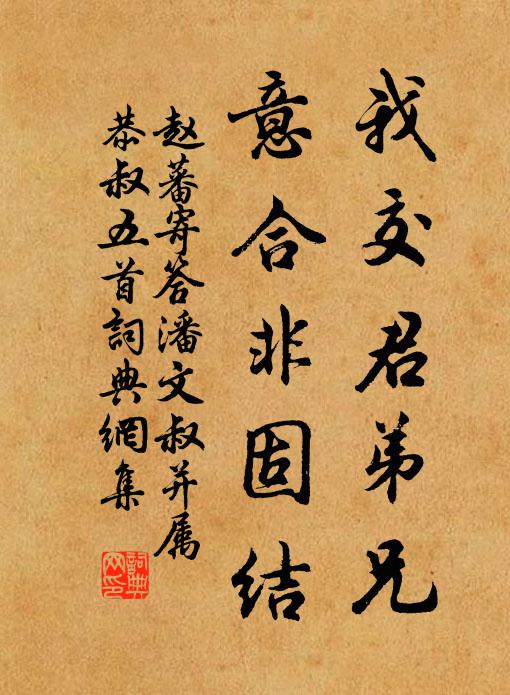 我交君弟兄
意合非固结
赵蕃寄答潘文叔并属
恭叔五首詞典網集
詞典
网印